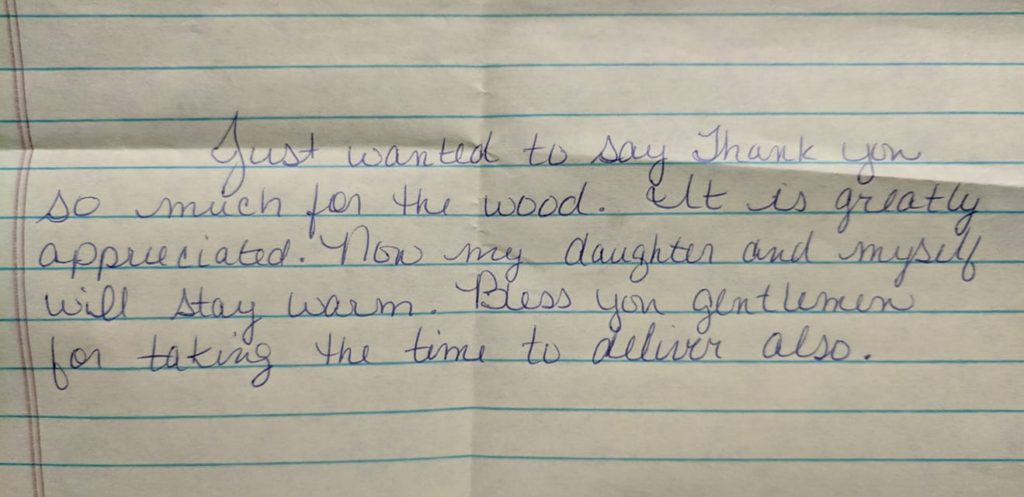 Just wanted to say Thank you
so much for the wood. It is greatly
appreciated. Now my daughter and myself
will stay warm. Bless you gentlemen
for taking the time to deliver also.